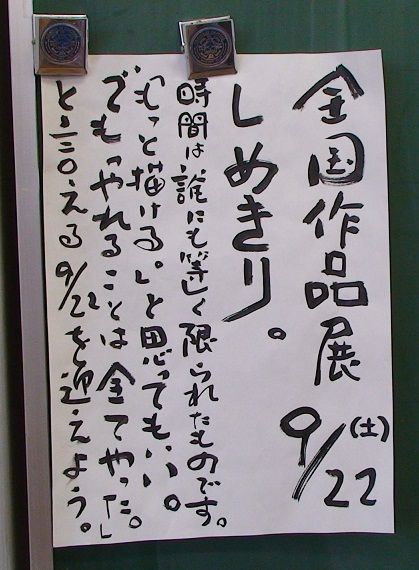 全国作品展 9/22(土)
しめきり。
時間は、誰にも等しく限られたものです。
"もっと描ける。"と思ってもいい。
"でもやれることは全てやった。"
と言える9/22を迎えよう。